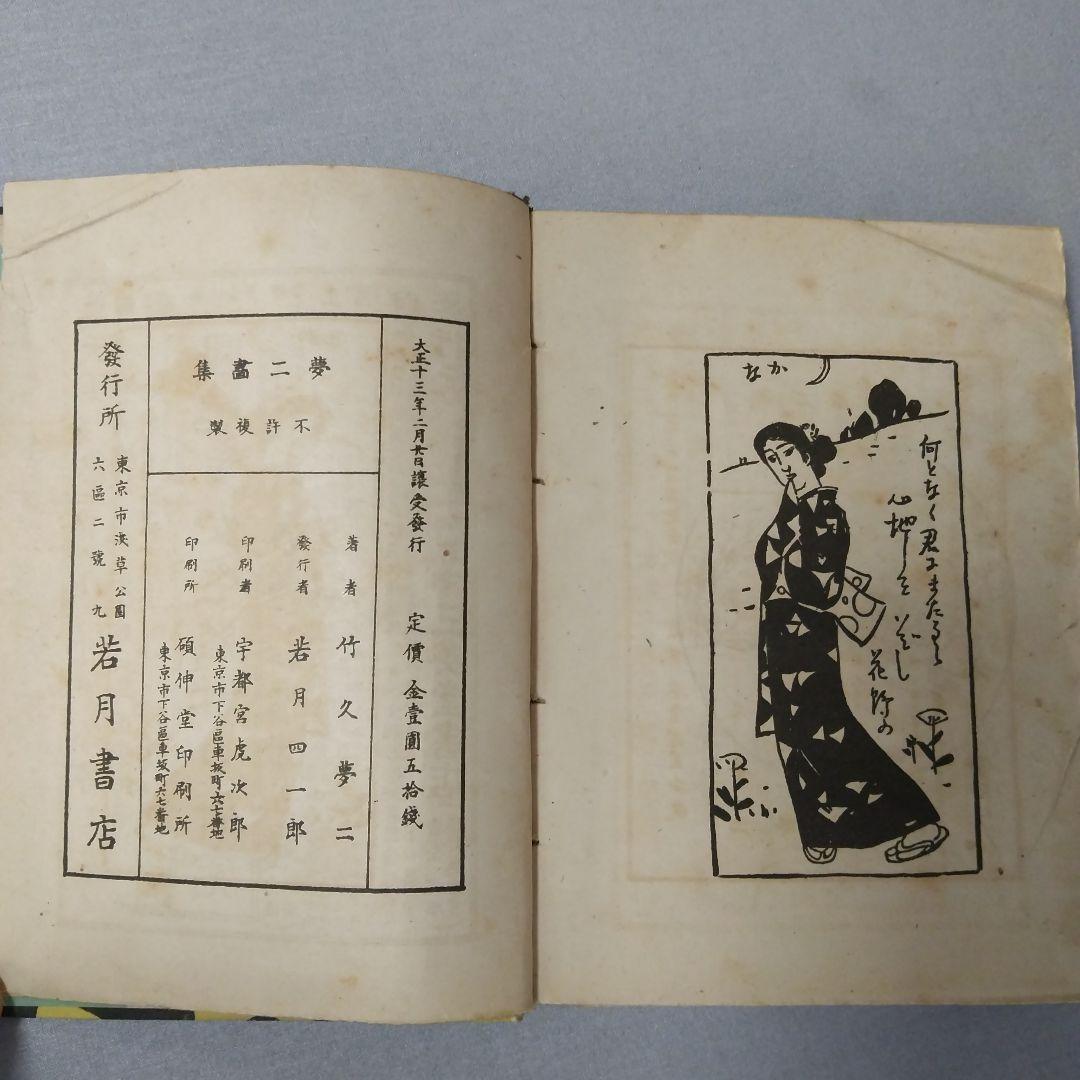 何となく君にまたるゝ
心地していでし
花野の
かな
大正十三年二月廿日讓受發行　定價 金壹圓五拾錢
夢二畫集
不許複製
著者　竹久夢二
發行者　若月四一郎
印刷者　宇都宮虎次郎
東京市下谷區車坂町六七番地
印刷所　碩伸堂印刷所
東京市下谷區車坂町六七番地
發行所
東京市淺草公園
六區二號九
若月書店